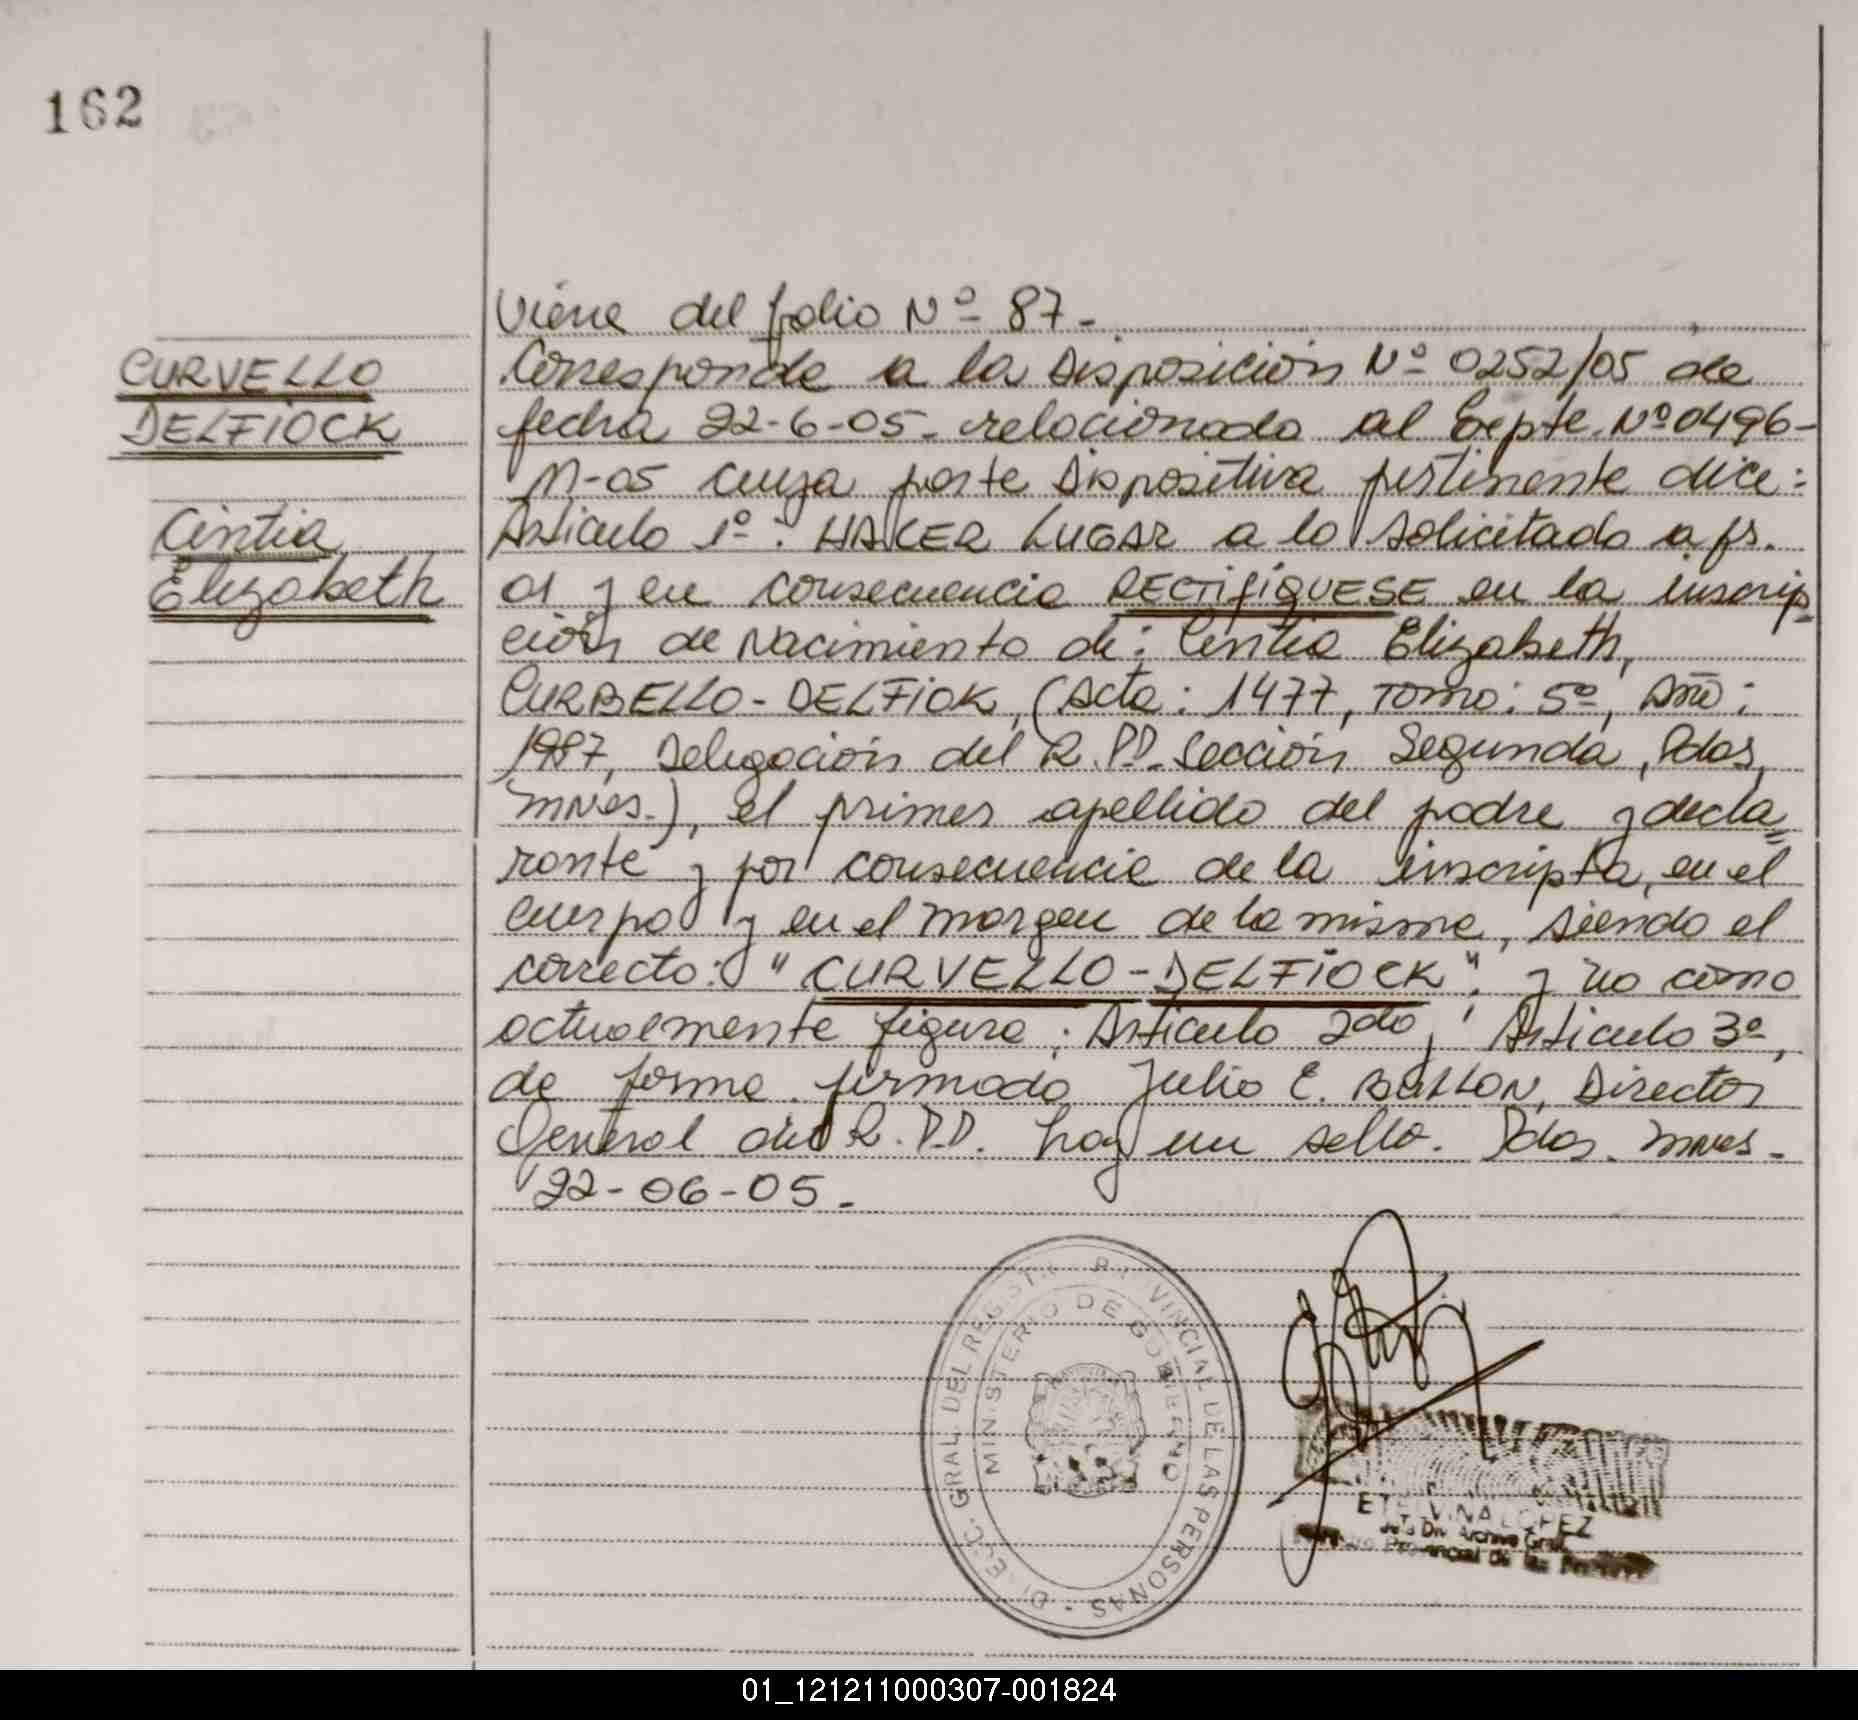 162
CURVELLO
DELFIOCK
Cintia
Elizabeth
Viene del folio Nº 87-
Corresponde a la Disposición Nº 0252/05 de
fecha 22-6-05- relacionado al Expte. Nº 0496-
M-05 cuya parte Dispositiva pertinente dice:
Articulo 1º: HACER LUGAR a lo solicitado a fs.
01 y en consecuencia RECTIFIQUESE en la inscrip
ción de Nacimiento de: Cintia Elizabeth,
CURBELLO-DELFIOK, (Acta: 1477, Tomo: 5º, Año:
1987, Delegación del R.P.P. Sección Segunda, Pdas,
Mnes.), el primer apellido del padre y decla=
rante y por consecuencia de la inscripta, en el
cuerpo y en el margen de la misma, siendo el
correcto: "CURVELLO-DELFIOCK", y no como
actualmente figura; Articulo 2do, Articulo 3º,
de forma. firmado Julio C. BALLON, Director
General del R.P.P. hay un sello. Pdas. Mnes-
22-06-05-
DIRECC. GRAL. DEL REGISTRO PROVINCIAL DE LAS PERSONAS -
MINISTERIO DE GOBIERNO
ETELVINA LOPEZ
Jefe Div. Archivo Gral.
Provincial de las
01_121211000307-001824